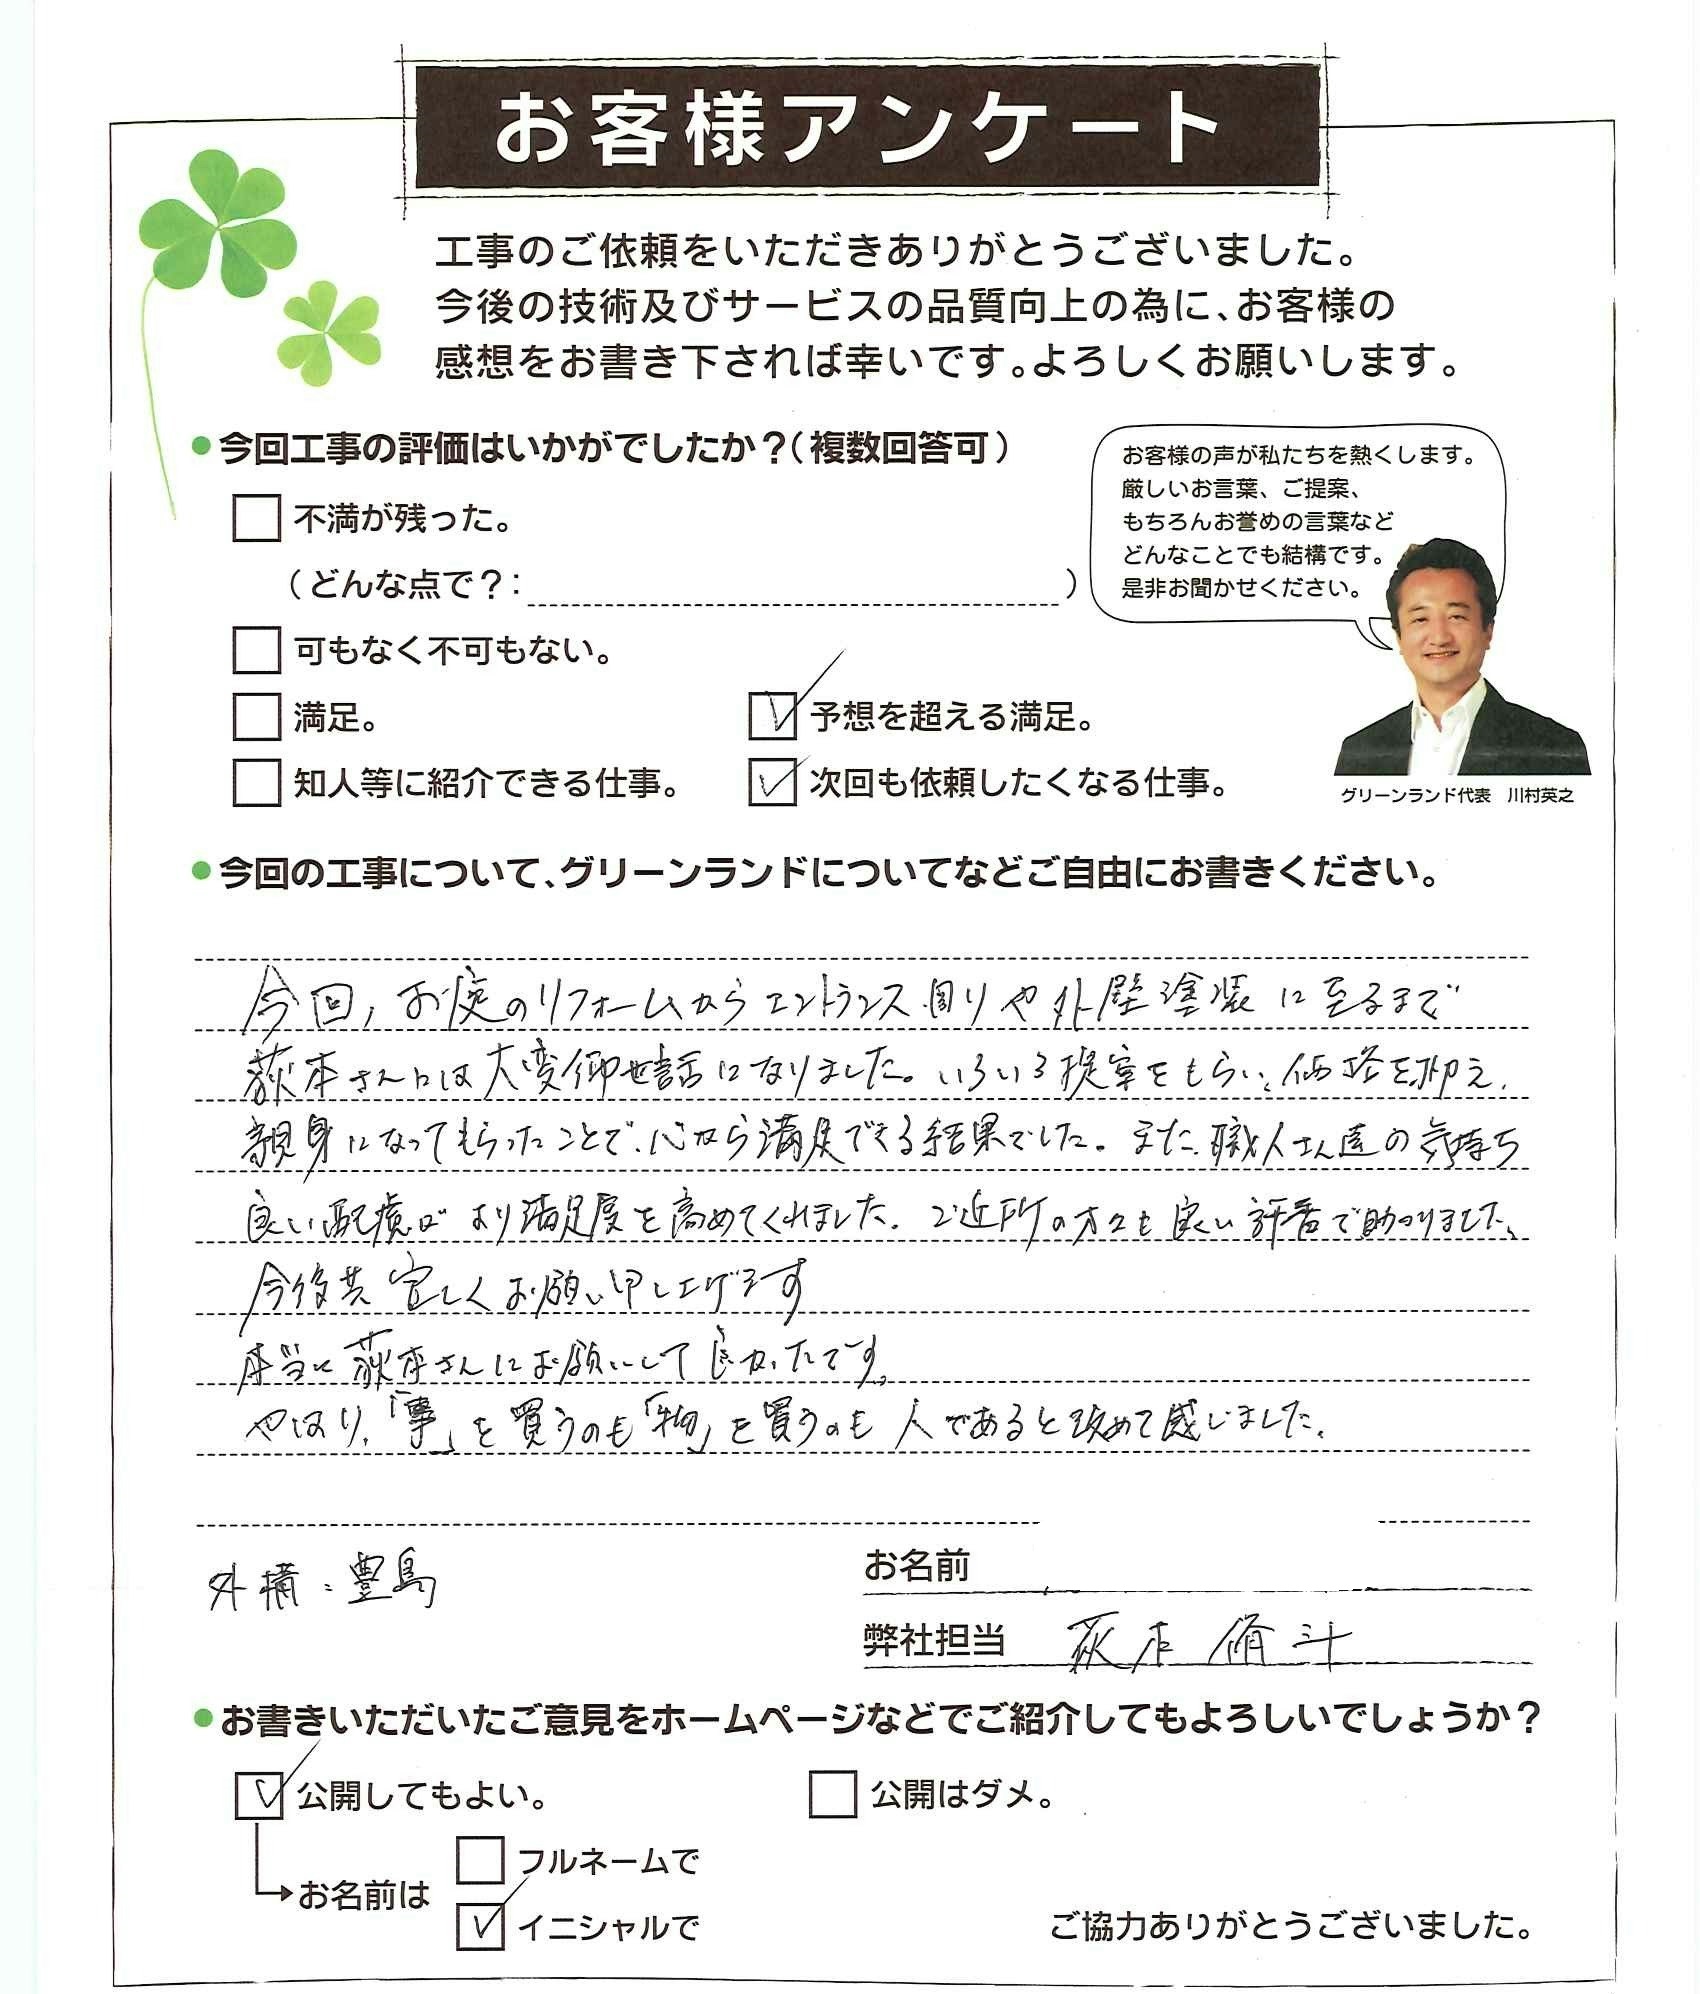 お客様アンケート
工事のご依頼をいただきありがとうございました。
今後の技術及びサービスの品質向上の為に、お客様の
感想をお書き下されば幸いです。よろしくお願いします。
●今回工事の評価はいかがでしたか？（複数回答可）
お客様の声が私たちを熱くします。
厳しいお言葉、ご提案、
もちろんお誉めの言葉など
どんなことでも結構です。
是非お聞かせください。
不満が残った。
（どんな点で？：　　　）
可もなく不可もない。
満足。
予想を超える満足。
知人等に紹介できる仕事。
次回も依頼したくなる仕事。
グリーンランド代表　川村英之
●今回の工事について、グリーンランドについてなどご自由にお書きください。
今回、お庭のリフォームからエントランス周りや外壁塗装に至るまで
荻本さんには大変御世話になりました。いろいろ提案をもらい、価格を抑え、
親身になってもらったことで、心から満足できる結果でした。また、職人さん達の気持ち
良い配慮がより満足度を高めてくれました。ご近所の方々も良い評番で助かりました。
今後共宜しくお願い申し上げます
本当に荻本さんにお願いして良かったです。
やはり、「事」を買うのも「物」を買うのも人であると改めて感じました。
外構：豊島
お名前
弊社担当　荻本 脩斗
●お書きいただいたご意見をホームページなどでご紹介してもよろしいでしょうか？
公開してもよい。
公開はダメ。
お名前は
フルネームで
イニシャルで
ご協力ありがとうございました。